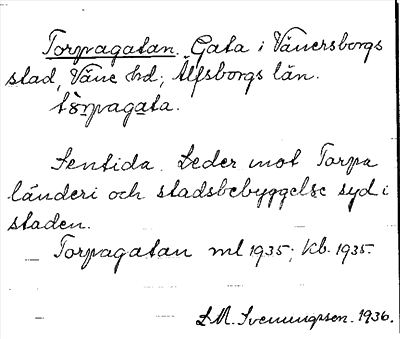 Torpagatan. Gata i Vänersborgs
stad, Väne hd; Älfsborgs län.
tårpagata.
Sentida. Leder mot Torpa
länderi och stadsbebyggelse syd i
staden.
Torpagatan ml 1935; kb. 1935.
L M. Svenungsson. 1936.